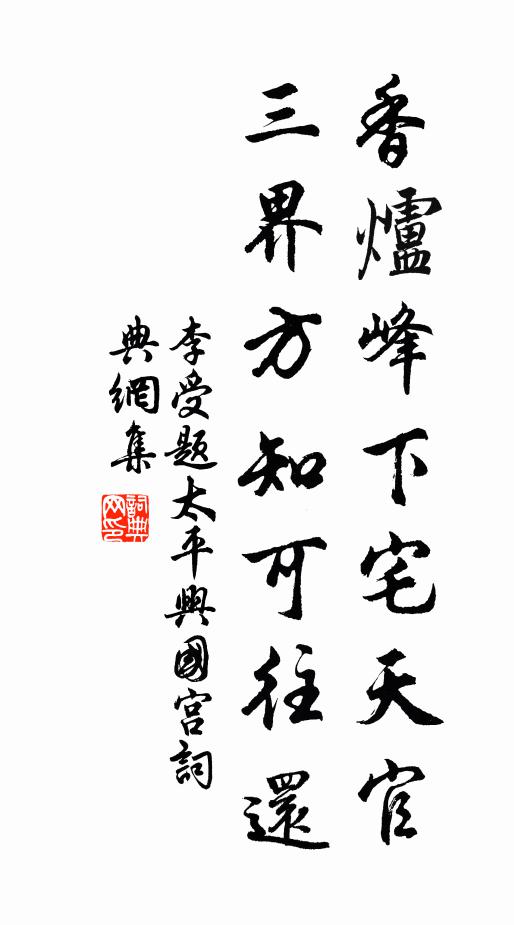 香爐峰下宅天官
三界方知可往還
李受題太平興國宮詞
典網集
詞典
网印